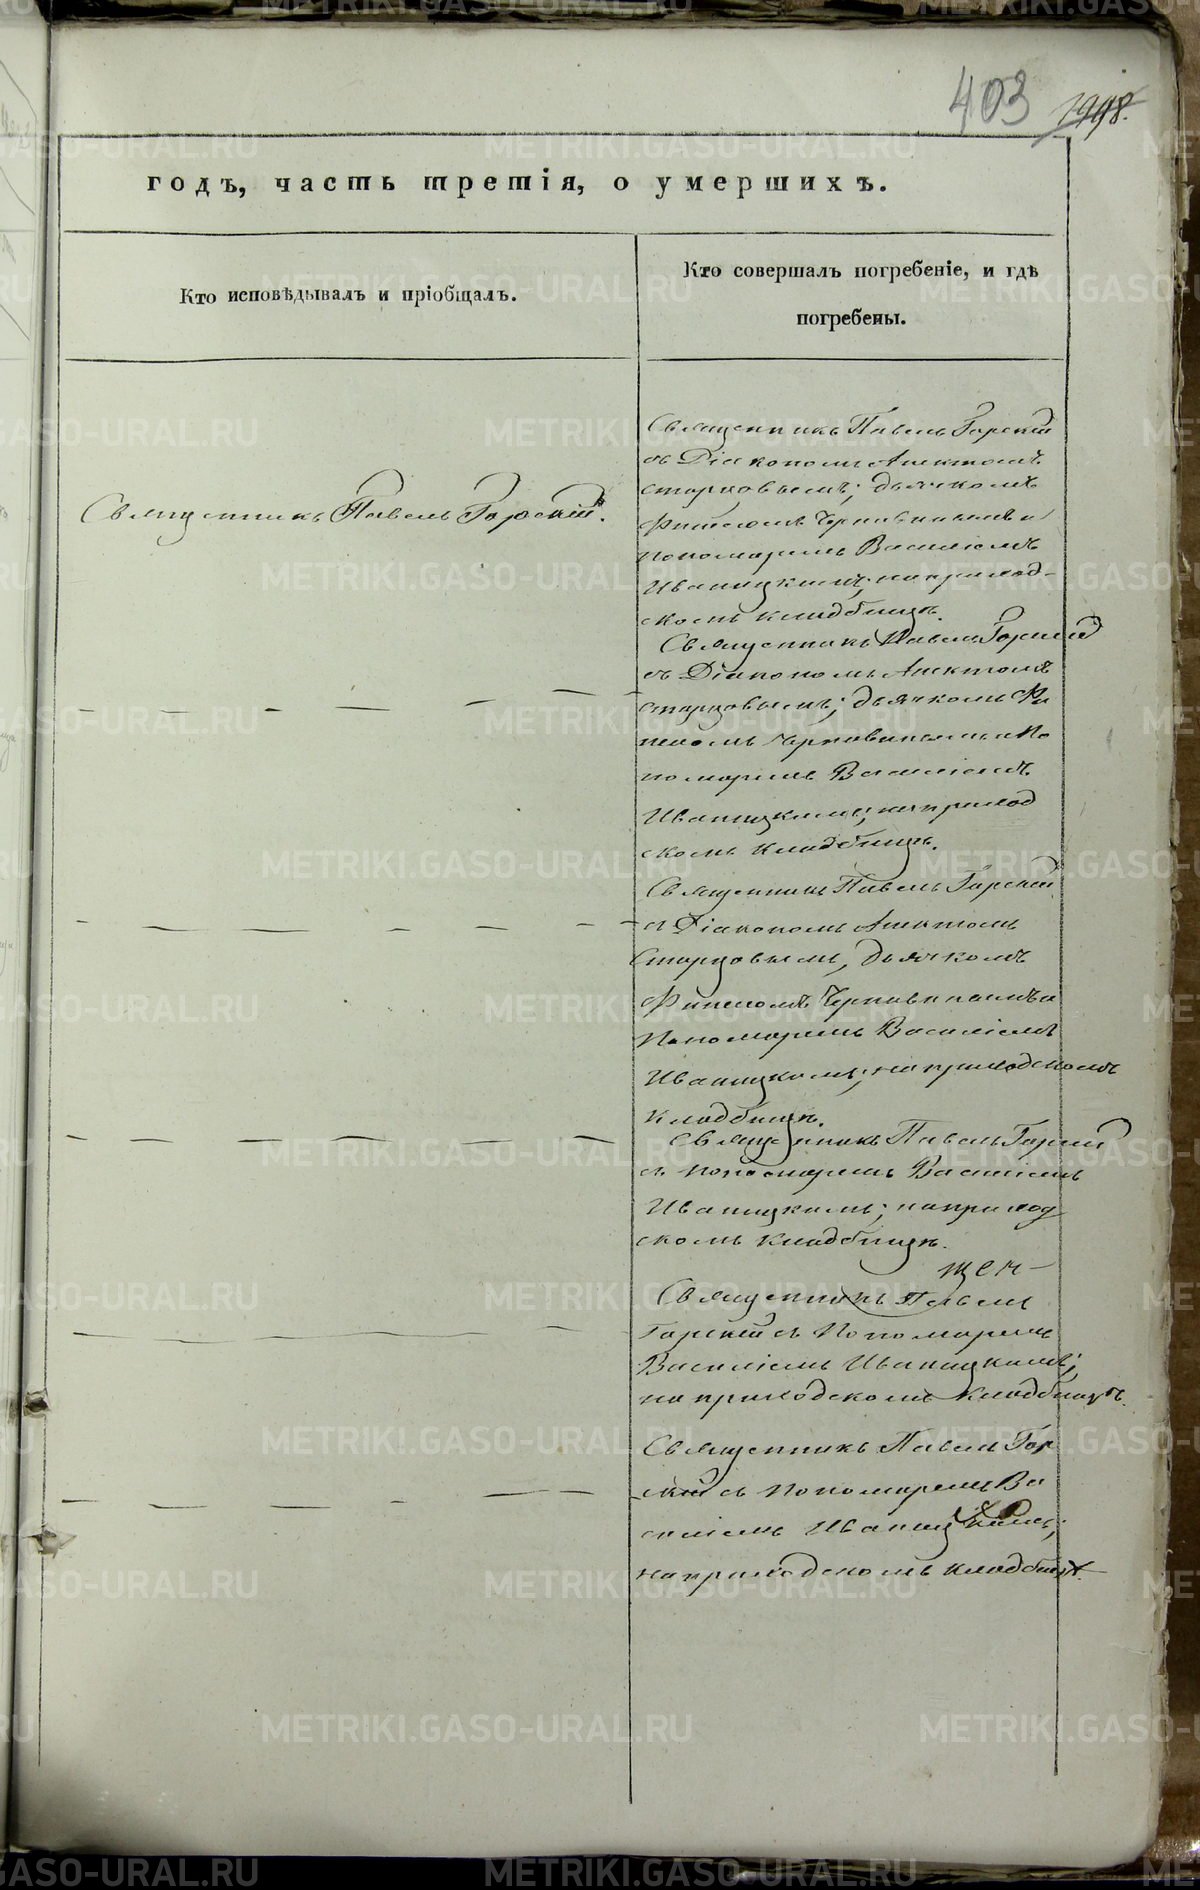 403 1998.
годъ, часть третія, о умершихъ.
Кто исповѣдывалъ и пріобщалъ.
Кто совершалъ погребеніе, и гдѣ
погребены.
Священникъ Павелъ Горскій.
Священникъ Павелъ Горскій
съ Діакономъ Аректомъ
Старцовымъ; дьячкомъ
Финеомъ Чернавинымъ и
пономаремъ Василіемъ
Иваницкимъ; на приход-
скомъ кладбищѣ.
Священникъ Павелъ Горскій
съ Діакономъ
Старцовымъ; дьячкомъ Фи
неомъ Чернавинымъ и По
номаремъ Василіемъ
Иваницкимъ; на приход
скомъ кладбищѣ.
Священникъ Павелъ Горскій
съ Діакономъ
Старцовымъ, дьячкомъ
Финеомъ Чернавинымъ и
Пономаремъ Василіемъ
Иваницкимъ; на приходскомъ
кладбищѣ.
Священникъ Павелъ Горскій
съ пономаремъ Василіемъ
Иваницкимъ; на приход
скомъ кладбищѣ.
щен-
Священникъ Павелъ
Горскій съ Пономаремъ
Василіемъ Иваницкимъ;
на приходскомъ кладбищѣ.
Священникъ Павелъ Гор
скій съ Пономаремъ Ва
силіемъ Иваницкимъ;
на приходскомъ кладбищѣ.
METRIKI.GASO-URAL.RU